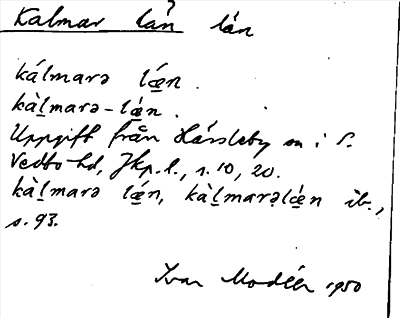 Kalmar län län
kálmarə lǽn.
kàlmarə-lǽn.
Uppgift från Hässleby sn i S.
Vedbo hd, Jkp. l., s. 10, 20.
kàlmarə lǽn, kàlmarəlǽn ib.,
s. 93.
Ivar Modéer 1950